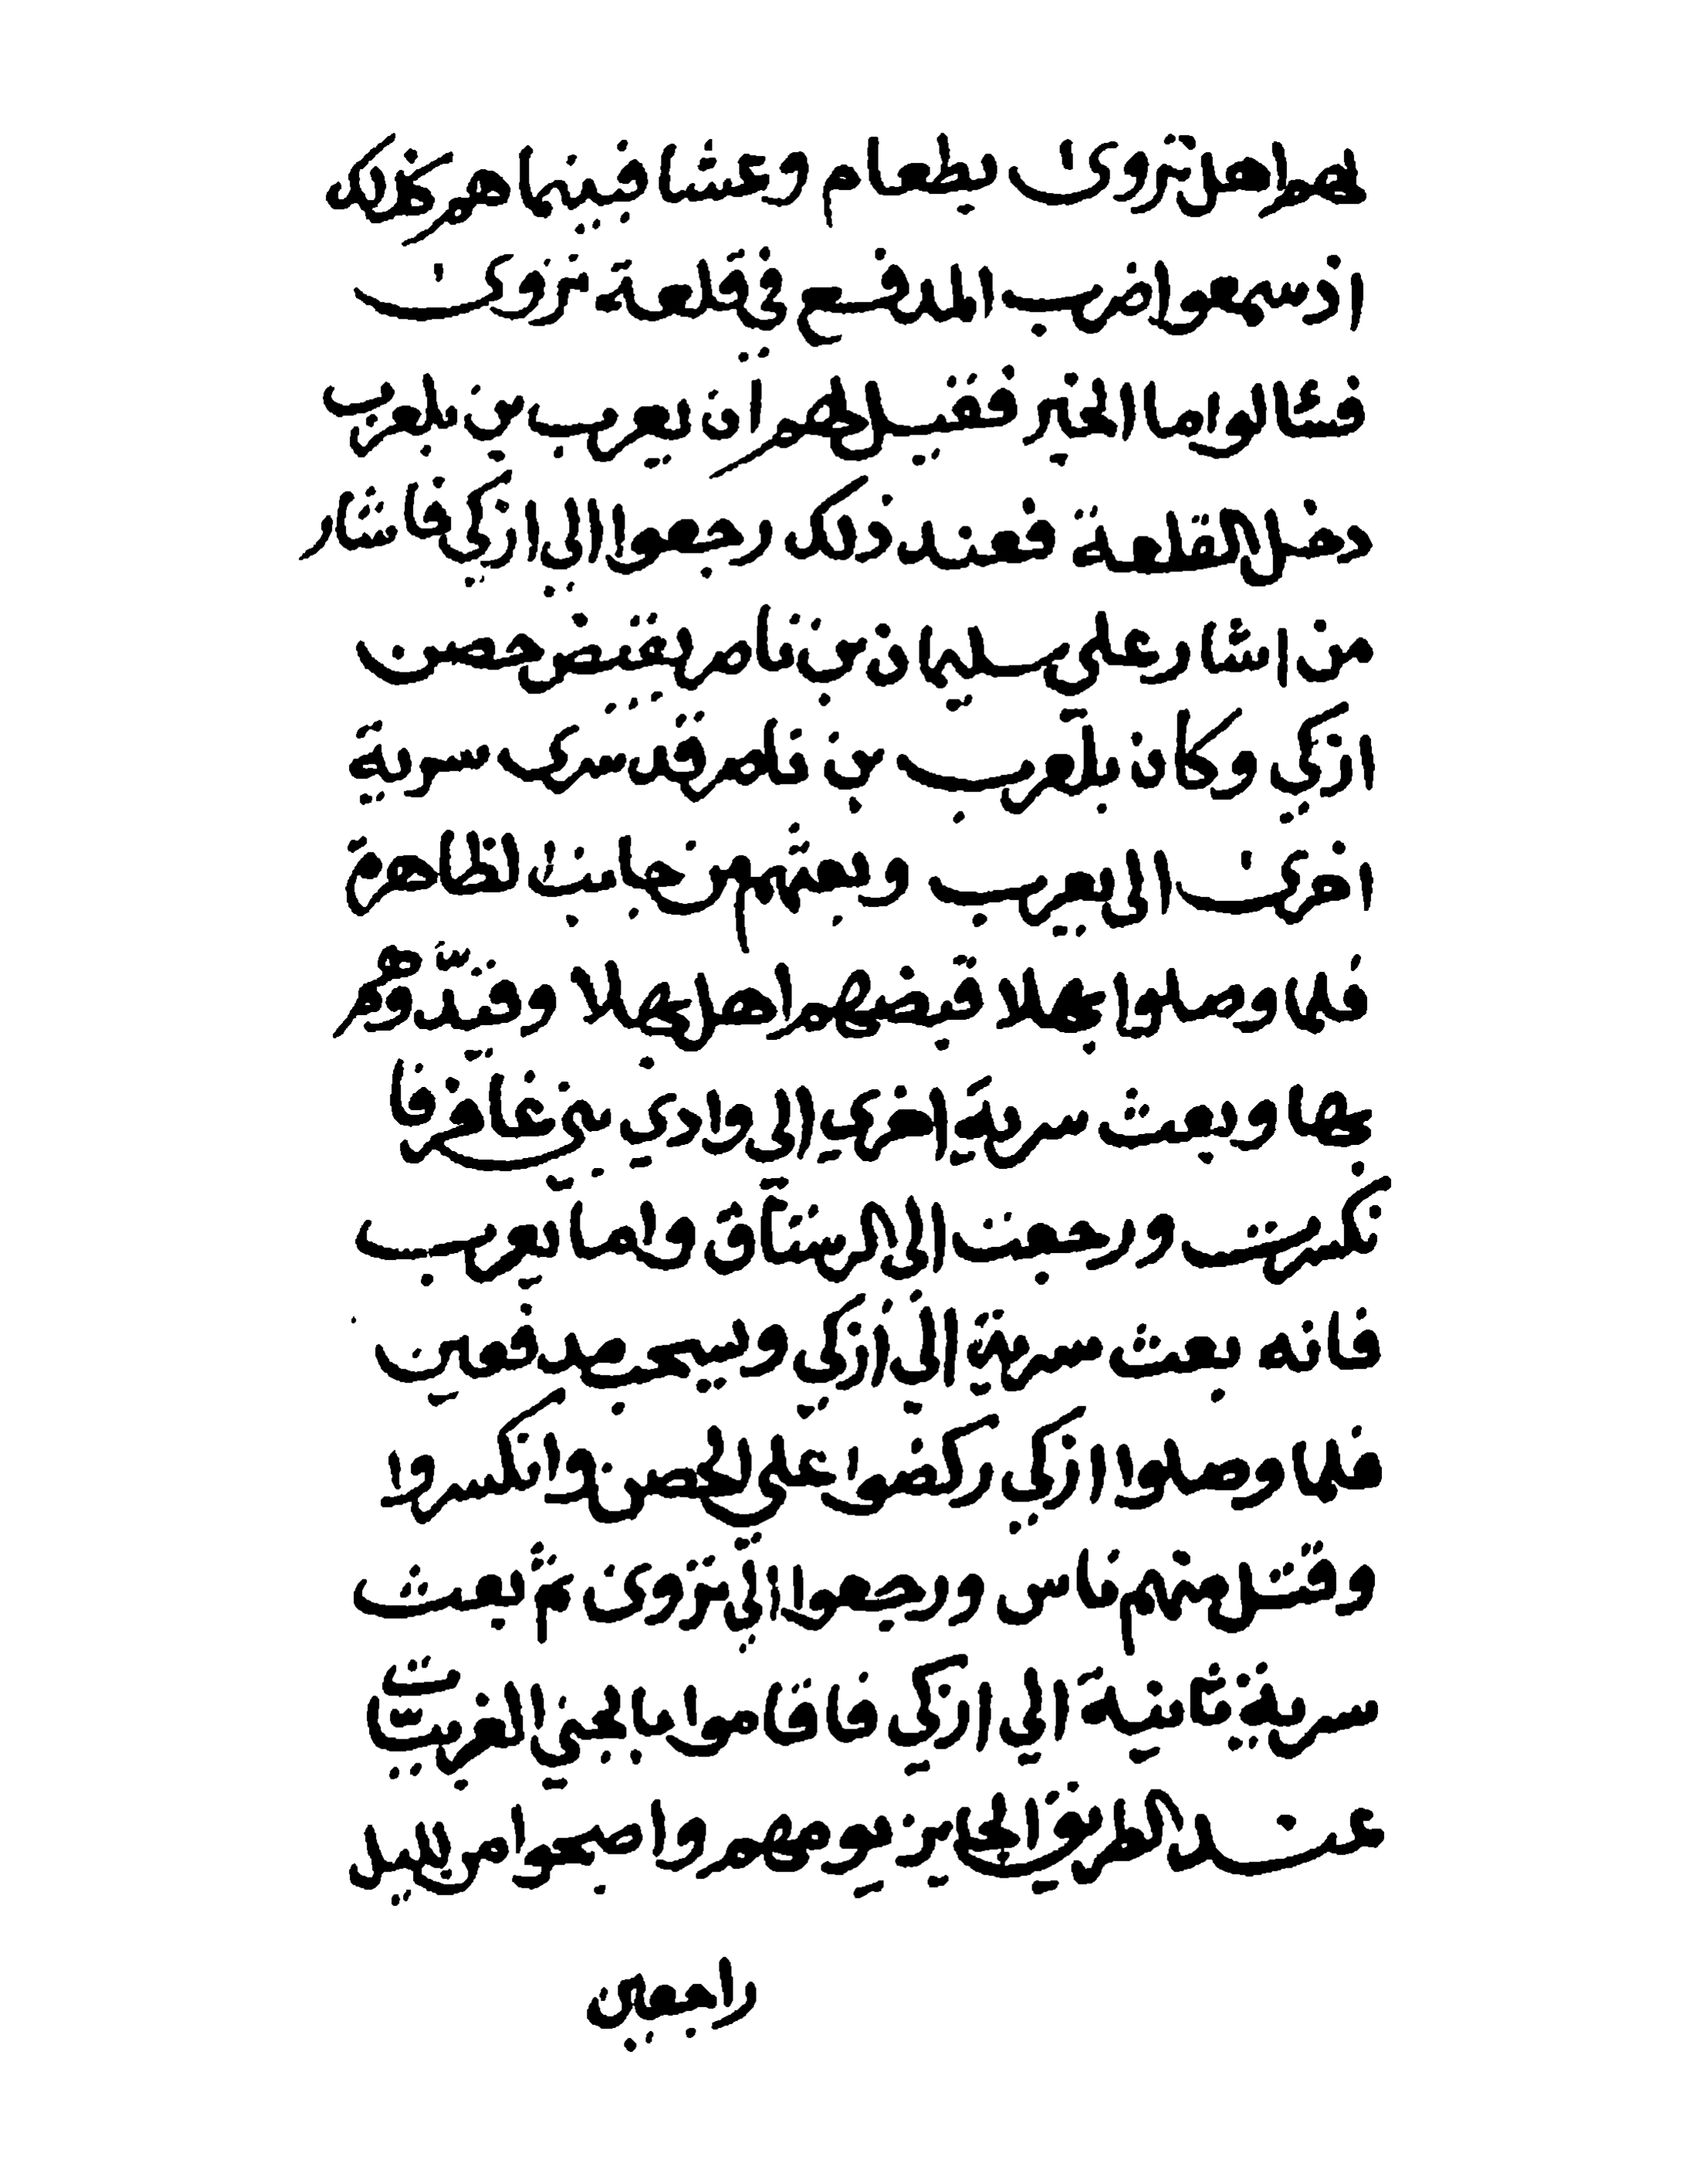 لهم اهل نزوى بطعام وعشا فبينما هم كذلك
اذ سمعوا ضرب المدفع في قلعة نزوى
فسئالوا ما الخبر فقيل لهم ان يعرب بن بلعرب
دخل القلعة فعند ذلك رجعوا الي ازكي فاشار
من اشار على سليمان بن ناصر يقبض حصن
ازكي وكان بلعرب بن ناصر قد سرى سرية
اخرى الى يعرب وبعثهم من جانب الظاهرة
فلما وصلوا بهلا قبضهم اهل بهلا وقيّدوهم
بها وبعث سرية اخري الى وادي بني غافر فا
نكسرت ورجعت الى الرستاق واما يعرب
فانه بعث سرية الي ازكي وسحب مدفعين
فلما وصلوا ازكي ركضوا على الحصن وانكسروا
وقتل منهم ناس ورجعوا الي نزوى ثم بعث
سرية ثانية الي ازكي فاقاموا بالجني الغربيات
عند الطريق الجايز يومهم واصبحوا من الليل
راجعين